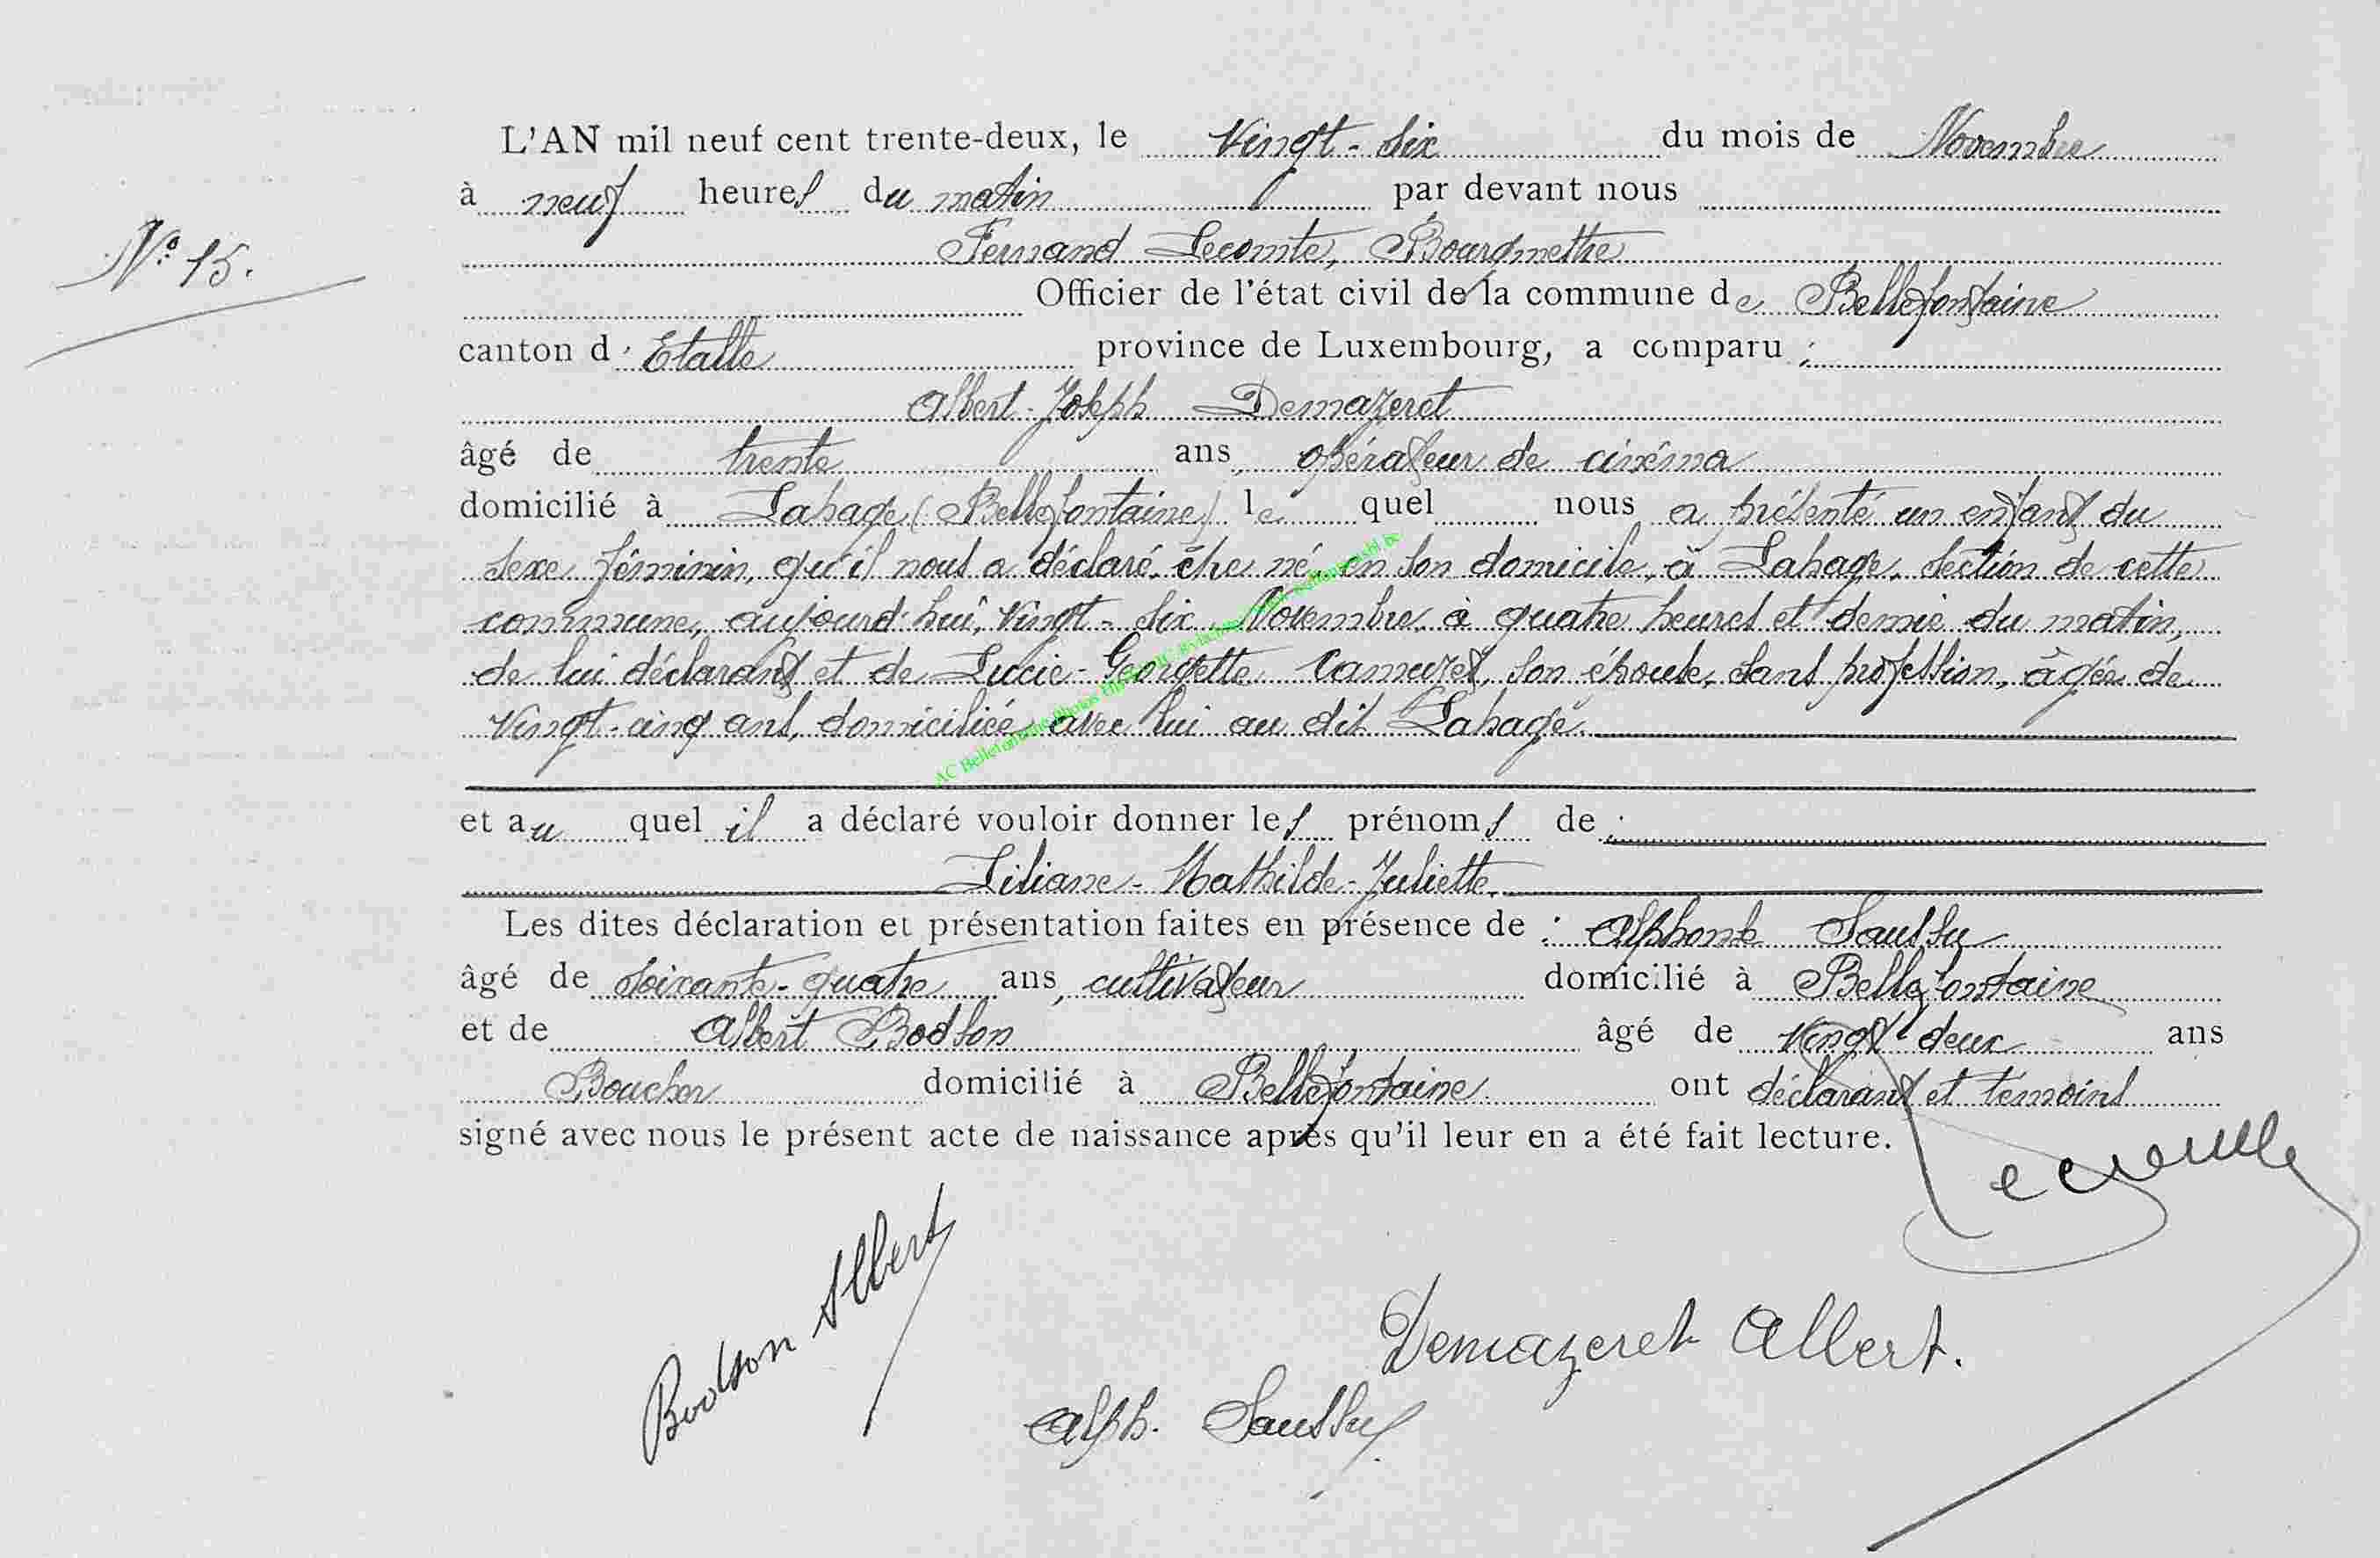 L'AN mil neuf cent trente-deux, le Vingt-six du mois de Novembre
à neuf heures du matin par devant nous
Fernand Lecomte, Bourgmestre
N° 15.
Officier de l'état civil de la commune de Bellefontaine
canton d'Etalle province de Luxembourg, a comparu :
Albert-Joseph Demazeret
âgé de trente ans, opérateur de cinéma
domicilié à Lahage (Bellefontaine) le quel nous a présenté un enfant du
sexe féminin, qu'il nous a déclaré être né, en son domicile, à Lahage, section de cette
commune, aujourd'hui, Vingt-six Novembre à quatre heures et demie du matin,
de lui déclarant et de Lucie-Georgette Camuzet, son épouse, sans profession, âgée de
Vingt-cinq ans, domiciliée avec lui au dit Lahage.
et au quel il a déclaré vouloir donner les prénoms de :
Liliane-Mathilde-Juliette.
Les dites déclaration et présentation faites en présence de : Alphonse Saussu
âgé de soixante-quatre ans, cultivateur domicilié à Bellefontaine
et de Albert Bodson âgé de Vingt deux ans
Boucher domicilié à Bellefontaine ont déclarant et témoins
signé avec nous le présent acte de naissance après qu'il leur en a été fait lecture.
Bodson Albert
Demazeret Albert.
Alph. Saussu